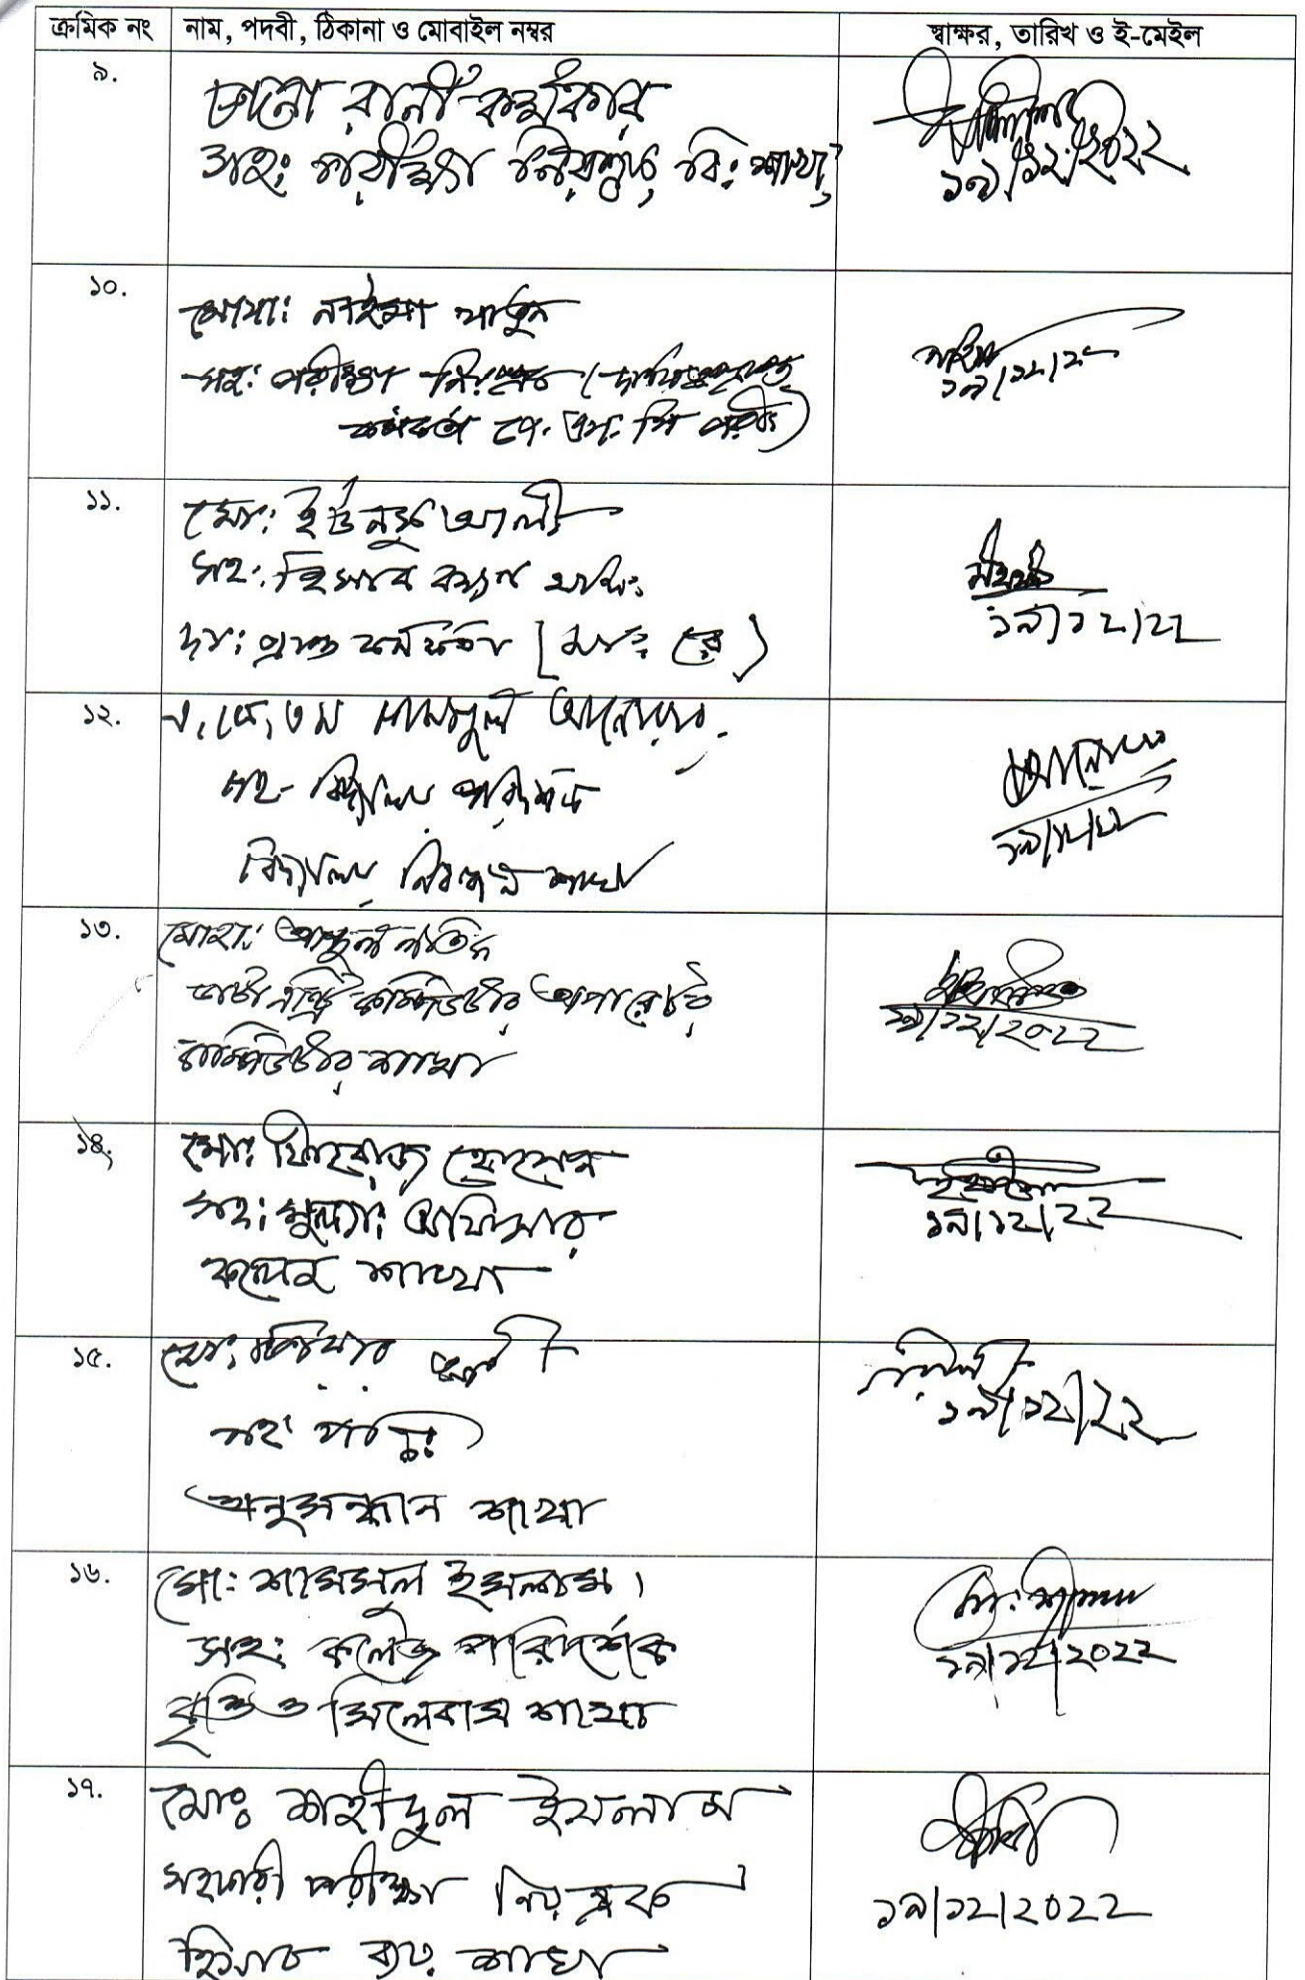 ক্রমিক নং নাম, পদবী, ঠিকানা ও মোবাইল নম্বর স্বাক্ষর, তারিখ ও ই-মেইল
৯.
রানী কর্মকার
সহঃ পরীক্ষা নিয়ন্ত্রক, বিঃ শাখা
১৯/১২/২০২২
১০.
মোসাঃ নাইমা খাতুন
সহঃ পরীক্ষা নিয়ন্ত্রক (দায়িত্বপ্রাপ্ত
কর্মকর্তা জে. এস. সি পরীক্ষা)
১৯/১২/২২
১১.
মোঃ ইউনুস আলী
সহঃ হিসাব রক্ষণ অফিঃ
দাঃ প্রাপ্ত কর্মকর্তা (মাঃ রে)
১৯/১২/২২
১২.
শামসুল আনোয়ার
সহ- বিদ্যালয় পরিদর্শক
বিদ্যালয় নিবন্ধন শাখা
১৯/১২/২২
১৩.
মোহাঃ আব্দুল লতিফ
ডাটা এন্ট্রি কম্পিউটার অপারেটর
কম্পিউটার শাখা
১৯/১২/২০২২
১৪.
মোঃ ফিরোজ হোসেন
সহঃ মূল্যাঃ অফিসার
কলেজ শাখা
১৯/১২/২২
১৫.
মোঃ আলী
সহঃ
অনুসন্ধান শাখা
১৯/১২/২২
১৬.
মোঃ শামসুল ইসলাম।
সহঃ কলেজ পরিদর্শক
বৃত্তি ও সিলেবাস শাখা
১৯/১২/২০২২
১৭.
মোঃ শহীদুল ইসলাম
সহকারী পরীক্ষা নিয়ন্ত্রক
শাখা
১৯/১২/২০২২